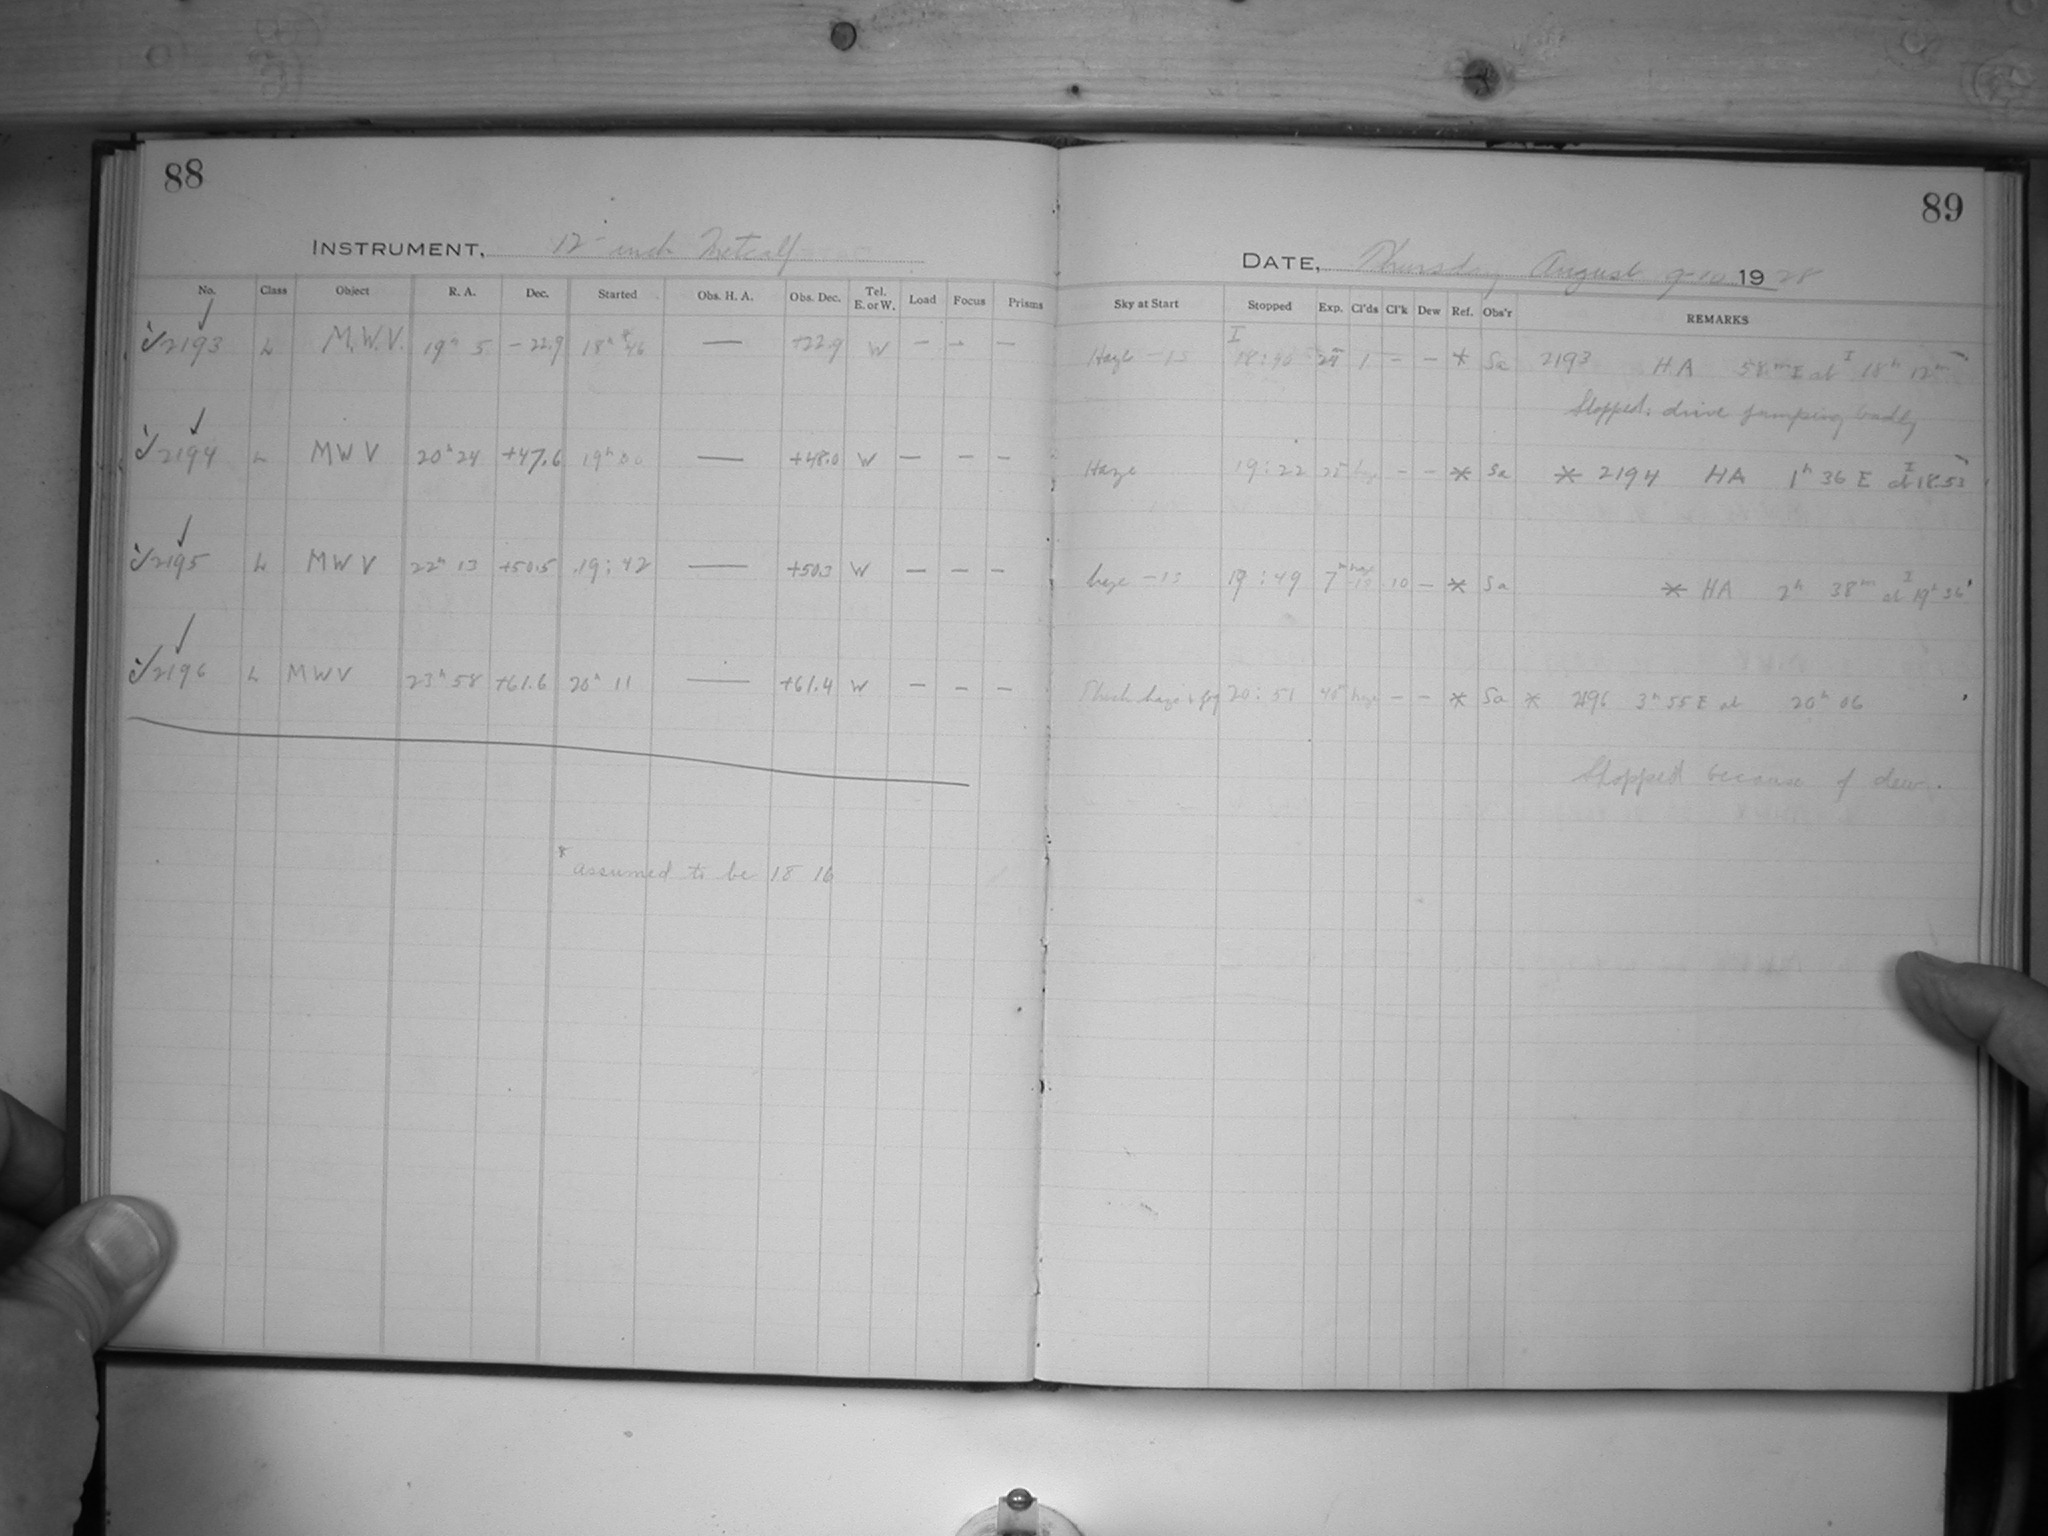 88
INSTRUMENT, 12-inch Metcalf
No. Class Object R. A. Dec. Started Obs. H. A. Obs. Dec. Tel. E. or W. Load Focus Prisms
2193 L M.W.V. 19h 5 -22.9 18h *46 — +22.9 W — — —
2194 L MWV 20h 24 +47.6 19h 00 — +48.0 W — — —
2195 L MWV 22h 13 +50.5 19:42 — +50.3 W — — —
2196 L MWV 23h 58 +61.6 20h 11 — +61.4 W — — —
* assumed to be 18 16
89
DATE, Thursday August 9-10 1928
Sky at Start Stopped Exp. Cl'ds Cl'k Dew Ref. Obs'r REMARKS
Haze -15 I 18:40 24m 1 — — * Sa 2193 HA 58m E at I 18h 12m
Stopped: drive jumping badly
Haze 19:22 22m haze — — * Sa * 2194 HA 1h 36 E at I 18:53
haze -15 19:49 7m haze -15 10 — * Sa * HA 2h 38m at I 19h 36
Thick haze & fog 20:51 40m haze — — * Sa * 2196 3h 55 E at 20h 06
Stopped because of dew.